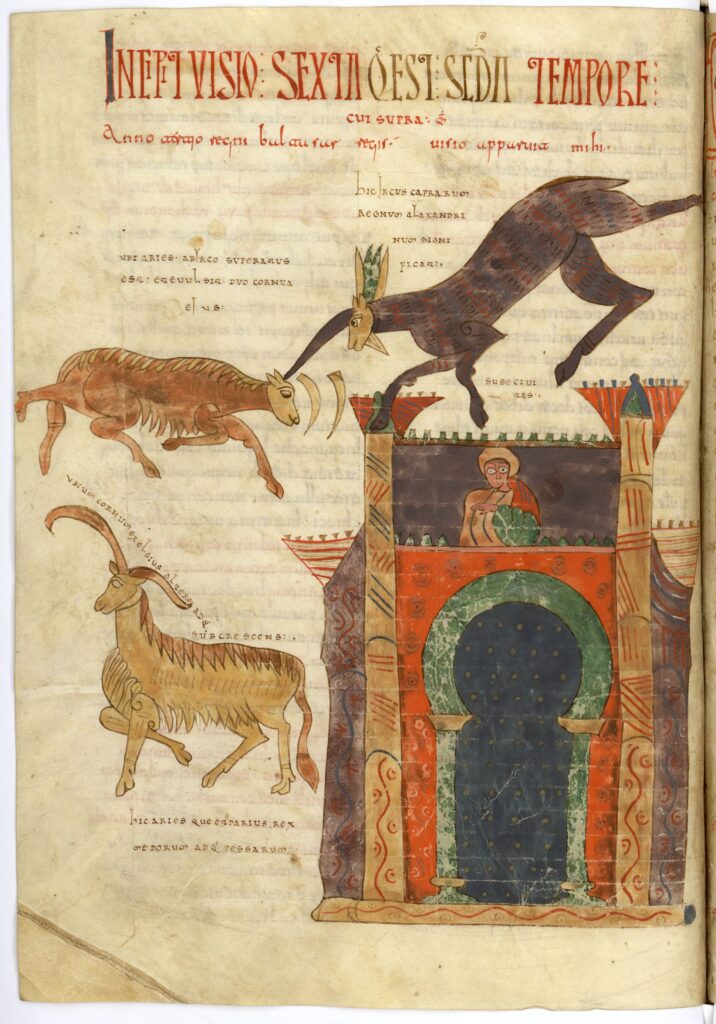 INCIPIT VISIO: SEXTA Q̄ EST: SCD̄A TEMPORE:
CUI SUPRA:
Anno tertio regni baltasar regis: visio apparuit mihi:
hIC hIRCUS CAPRARUM
REGNUM ALAXANDRI
NUM SIGNI
FICAT:
UBI ARIES: AB IRCO SUPERATUS
EST: ET EVULSIT DUO CORNUA
EIUS:
SUSE CIVI
TAS:
UNUM CORNUM EXCELSIUS ALTERO ADQ
SUBCRESCENS:
hIC ARIES QUE EST DARIUS REX
MEDORUM ADQ PERSARUM